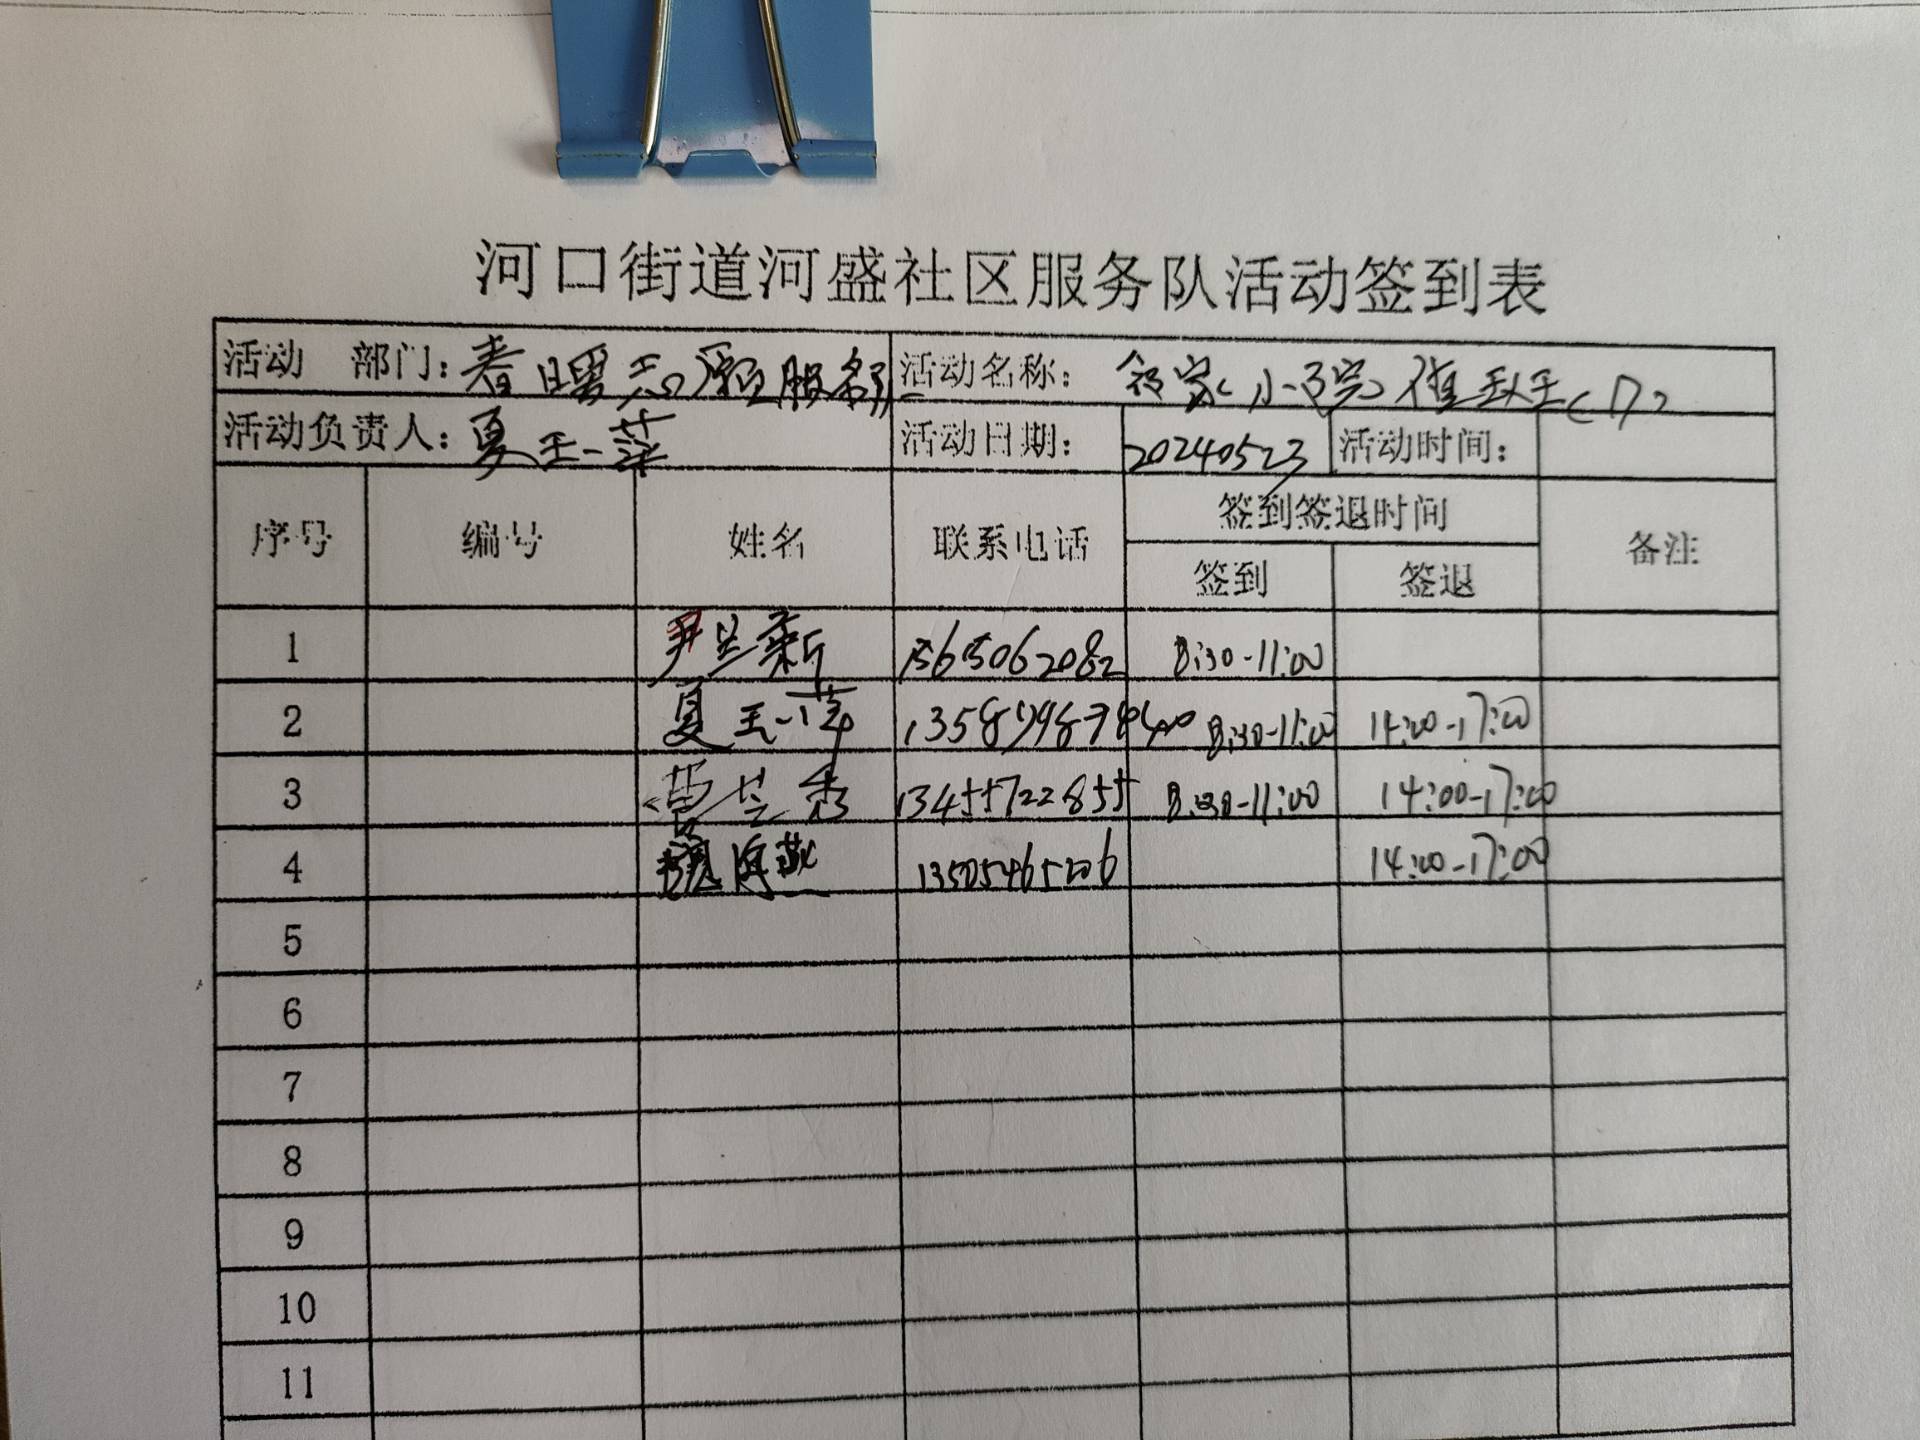 河口街道河盛社区服务队活动签到表
活动 部门：春暖志愿服务队 活动名称：邻家小院值班(7)
活动负责人：夏玉萍 活动日期：20240523 活动时间：
序号 编号 姓名 联系电话 签到签退时间 备注
签到 签退
1 尹兰新 15615062082 8:30-11:00
2 夏玉萍 8:30-11:00 14:00-17:00
3 曹兰秀 13455722855 8:30-11:00 14:00-17:00
4 魏海燕 13505465206 14:00-17:00
5
6
7
8
9
10
11